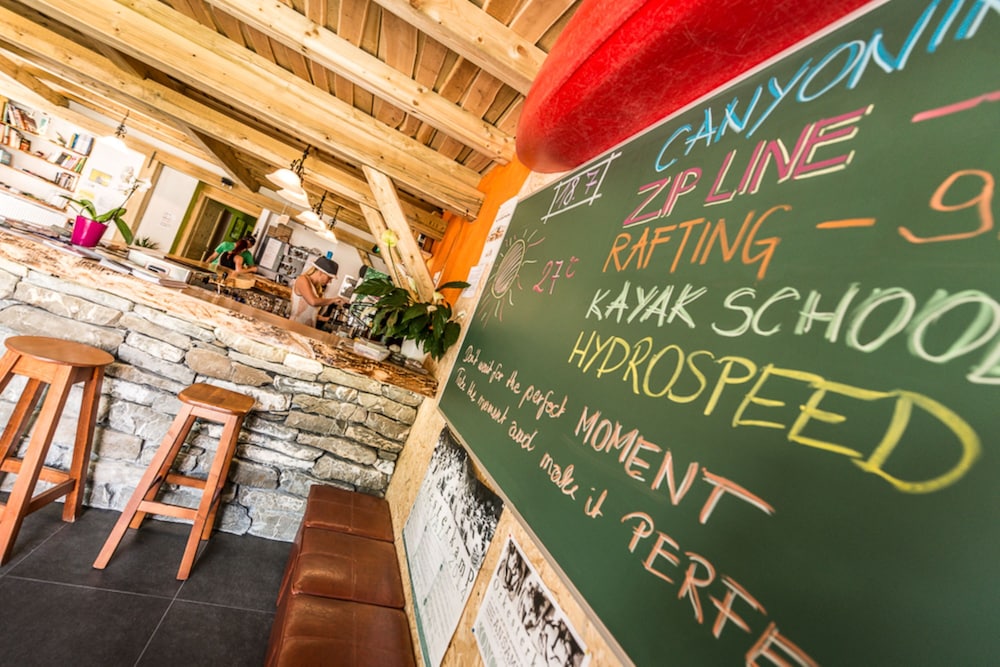 18.7
27°C
CANYONIN
ZIP LINE -
RAFTING - 9
KAYAK SCHOOL
HYDROSPEED
Don't wait for the perfect MOMENT
Take the moment and make it PERFE